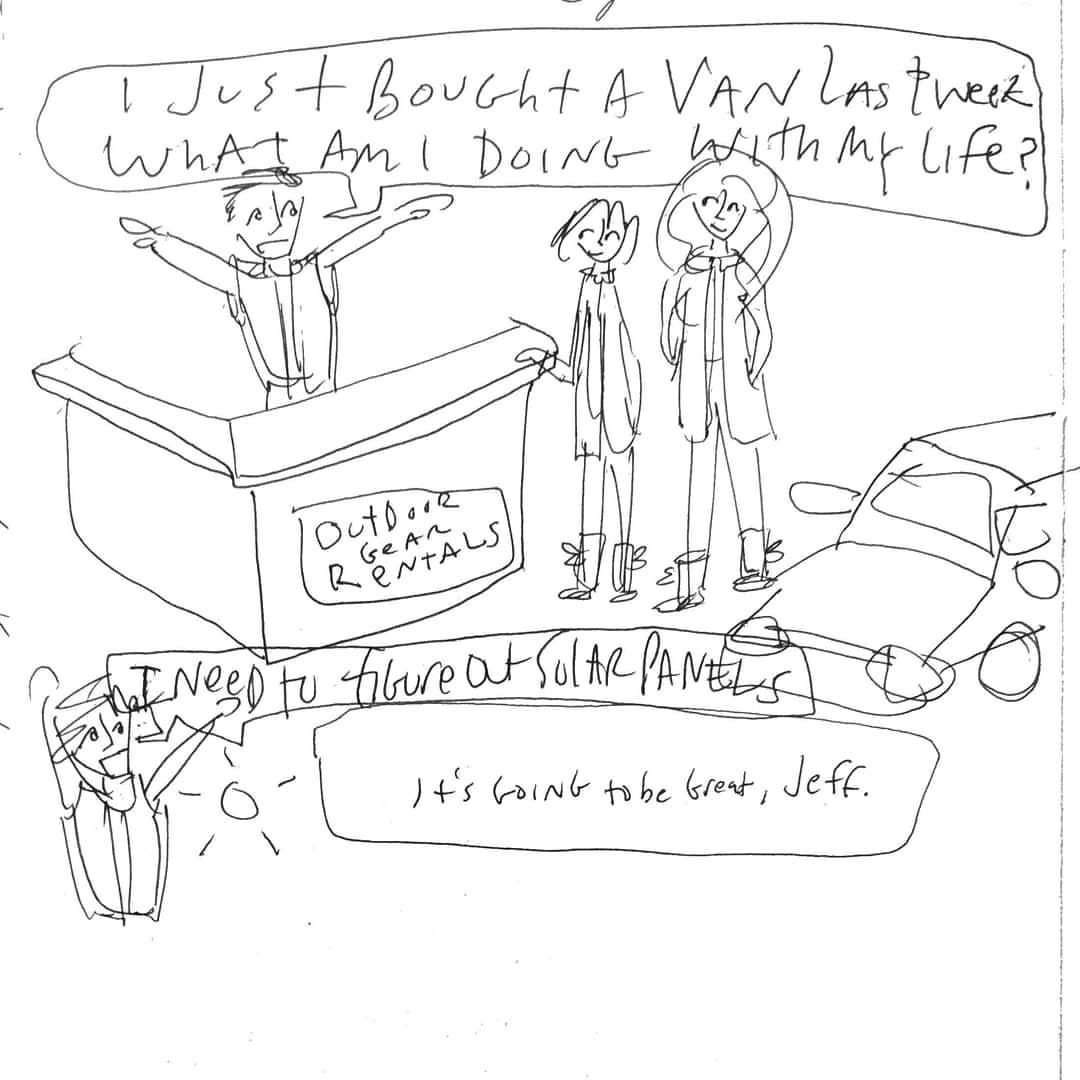 I JUST BOUGHT A VAN LAST WEEK
WHAT AM I DOING WITH MY LIFE?
OUTDOOR
GEAR
RENTALS
I NEED to figure out SOLAR PANELS
It's GOING to be Great, Jeff.